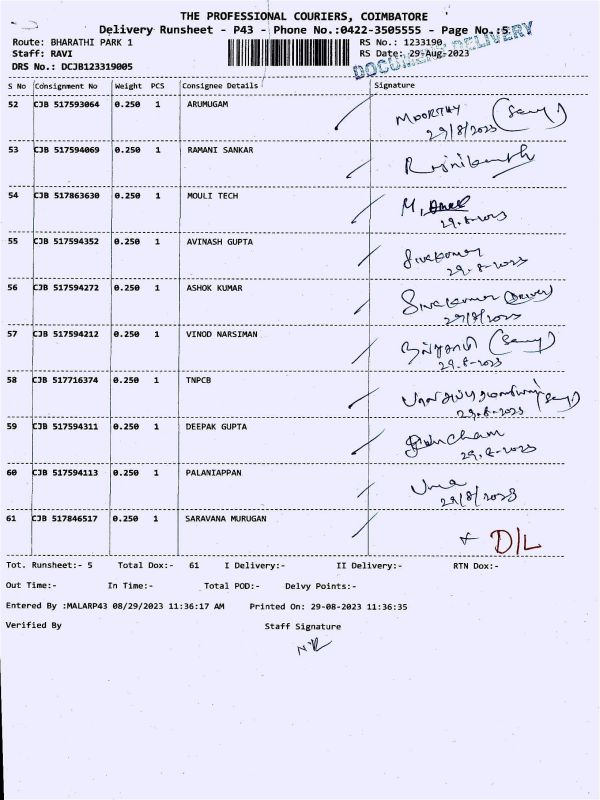 THE PROFESSIONAL COURIERS, COIMBATORE
Delivery Runsheet - P43 - Phone No.:0422-3505555 - Page No.:5
Route: BHARATHI PARK 1
RS No.: 1233190
Staff: RAVI
RS Date: 29-Aug-2023
DRS No.: DCJB123319005
DELIVERY
S No Consignment No Weight PCS Consignee Details Signature
52 CJB 517593064 0.250 1 ARUMUGAM
MOORTHY
29/8/2023
53 CJB 517594069 0.250 1 RAMANI SANKAR
54 CJB 517863630 0.250 1 MOULI TECH
M.
29.8.2023
55 CJB 517594352 0.250 1 AVINASH GUPTA
Sivakumar
29.8.2023
56 CJB 517594272 0.250 1 ASHOK KUMAR
Sivakumar (Driver)
29/8/2023
57 CJB 517594212 0.250 1 VINOD NARSIMAN
29.8.2023
58 CJB 517716374 0.250 1 TNPCB
29.8.2023
59 CJB 517594311 0.250 1 DEEPAK GUPTA
29.8.2023
60 CJB 517594113 0.250 1 PALANIAPPAN
Uma
29/8/2023
61 CJB 517846517 0.250 1 SARAVANA MURUGAN
D/L
Tot. Runsheet:- 5 Total Dox:- 61 I Delivery:- II Delivery:- RTN Dox:-
Out Time:- In Time:- Total POD:- Delvy Points:-
Entered By :MALARP43 08/29/2023 11:36:17 AM Printed On: 29-08-2023 11:36:35
Verified By Staff Signature